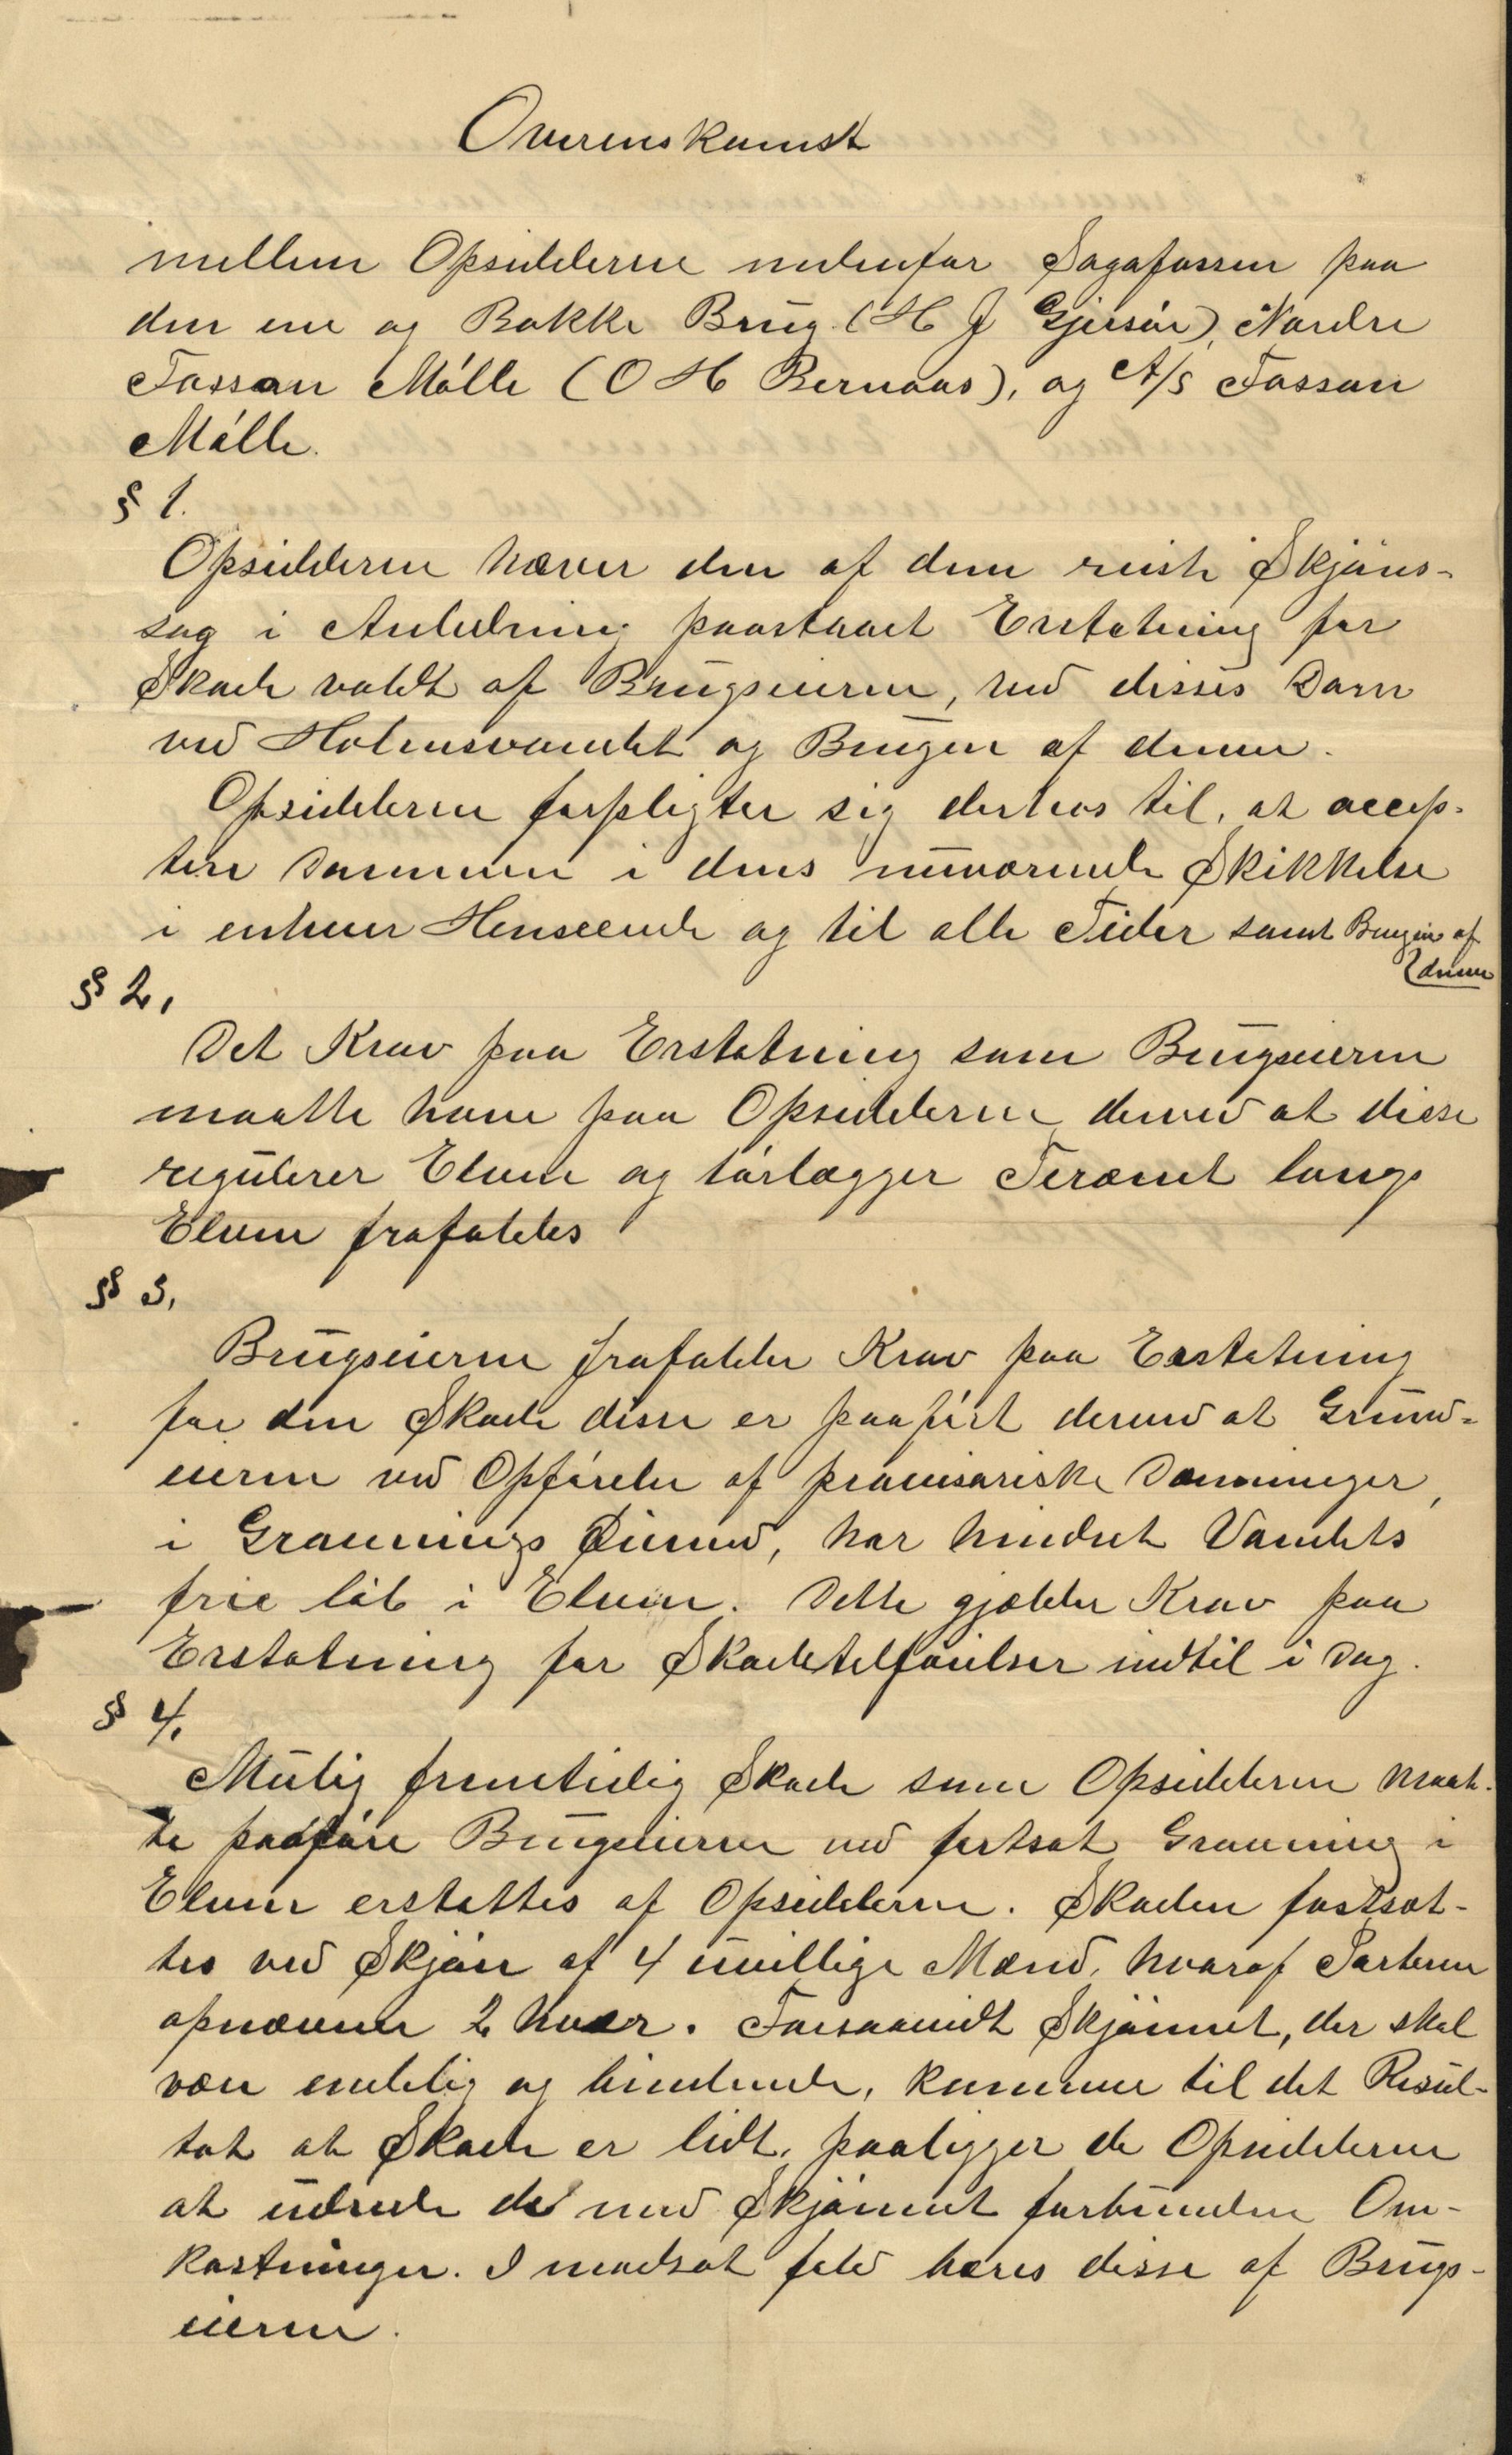 Overenskomst
mellem Opsidderne nedenfor Sagafossen paa
den ene og Bakke Brug (H J Gjersöe), Nordre
Fossan Mölle (O H Bernaas), og A/S Fossan
Mölle.
§ 1.
Opsidderne hæver den af dem reiste Skjöns-
sag i Anledning paastaaet Erstatning for
Skade voldt af Brugseierne, ved disses Dam
ved Holensvandet og Brugen af denne.
Opsidderne forpligter sig derhos til, at accep-
tere Dammen i dens nuværende Skikkelse
i enhver Henseende og til alle Tider samt Brugen af
denne
§ 2,
Det Krav paa Erstatning som Brugseierne
maatte have paa Opsidderne derved at disse
regulerer Elven og tørlægger Terænet langs
Elven frafaldes
§ 3,
Brugseierne frafalder Krav paa Erstatning
for den Skade disse er paaført derved at Grund-
eierne ved Opførelse af provisoriske Dæmninger,
i Gravnings Øiemed, har hindret Vandets
frie løb i Elven. Dette gjælder Krav paa
Erstatning for Skadetilføielser indtil i Dag.
§ 4.
Mulig fremtidig Skade som Opsidderne maat-
te paaføre Brugseierne ved fortsat Gravning i
Elven erstattes af Opsidderne. Skaden fastsæt-
tes ved Skjøn af 4 uvillige Mænd, hvoraf Parterne
opnævner 2 hver. Forsaavidt Skjønnet, der skal
være endelig og bindende, kommer til det Resul-
tat at Skade er lidt, paaligger de Opsidderne
at udrede de med Skjønnet forbundne Om-
kostninger. I modsat fald bæres disse af Brugs-
eierne.